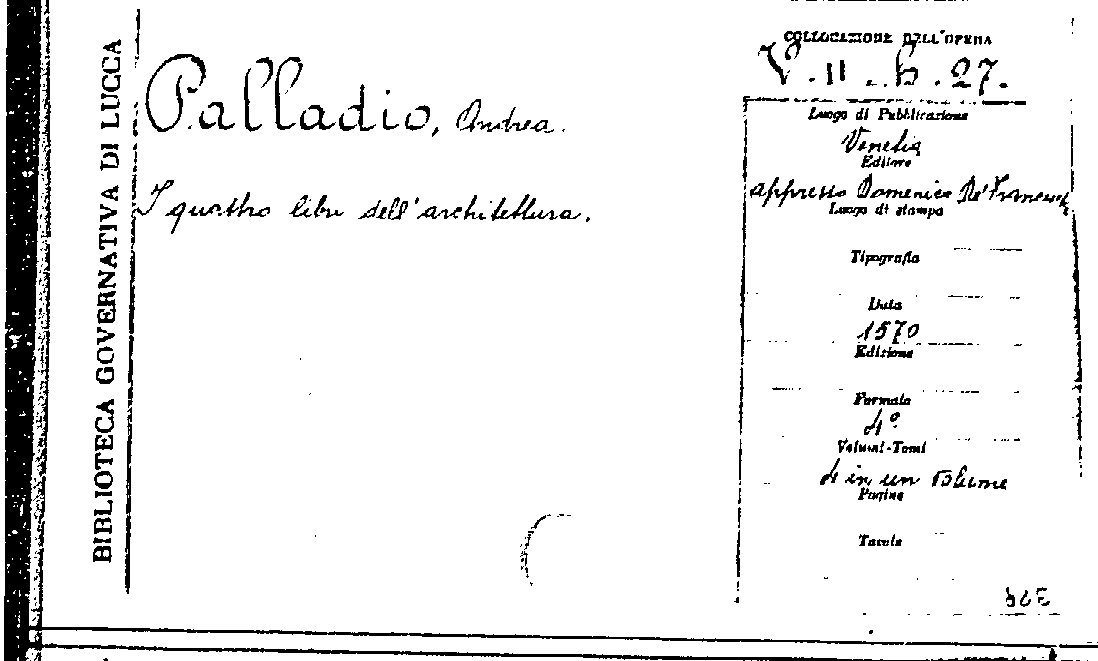 BIBLIOTECA GOVERNATIVA DI LUCCA
Palladio, Andrea.
I quattro libri dell'architettura.
COLLOCAZIONE DELL'OPERA
V.II.h.27.
Luogo di Pubblicazione
Venetia
Editore
appresso Domenico De' Franceschi
Luogo di stampa
Tipografia
Data
1570
Edizione
Formato
4°
Volumi-Tomi
4 in un volume
Pagine
Tavole